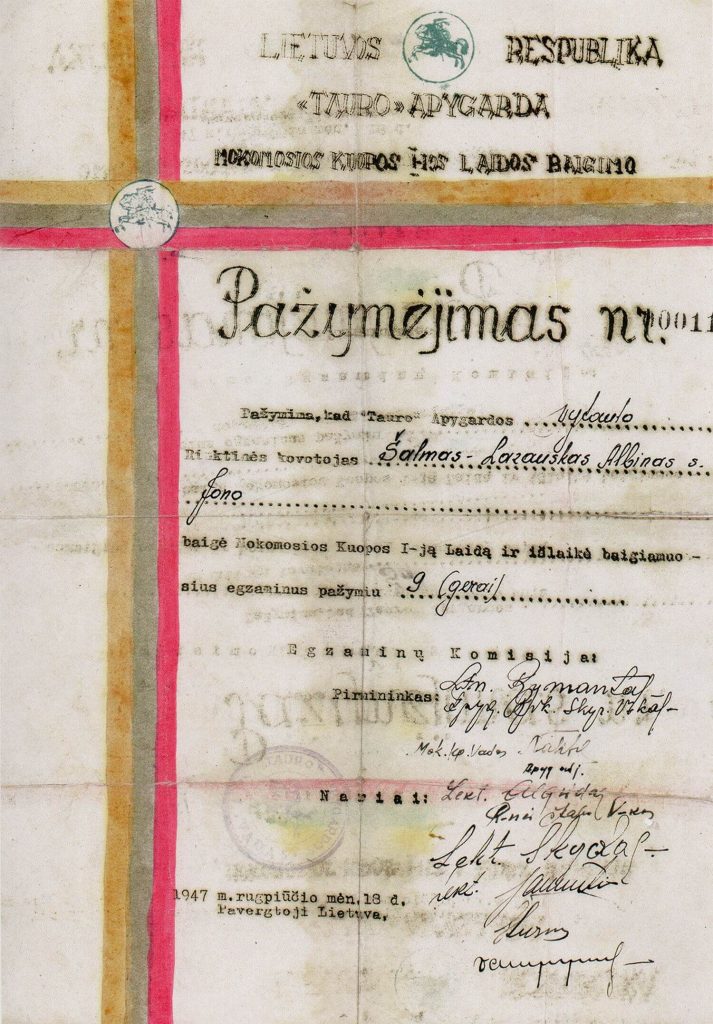 LIETUVOS RESPUBLIKA
«TAURO» APYGARDA
MOKOMOSIOS KUOPOS I-IOS LAIDOS BAIGIMO
Pažymėjimas nr. 00011
Pažymima, kad "Tauro" Apygardos Vytauto
Rinktinės kovotojas Šalmas - Lazauskas Albinas s.
Jono
baigė Mokomosios Kuopos I-ją Laidą ir išlaikė baigiamuo -
sius egzaminus pažymiu 9 (gerai)
Egzaminų Komisija:
Pirmininkas: Ltn.
Mok. kp. Vadas
Apyg adj.
Nariai: Lekt.
Lekt.
lekt.
1947 m. rugpiūčio mėn. 18 d.
Pavergtoji Lietuva,